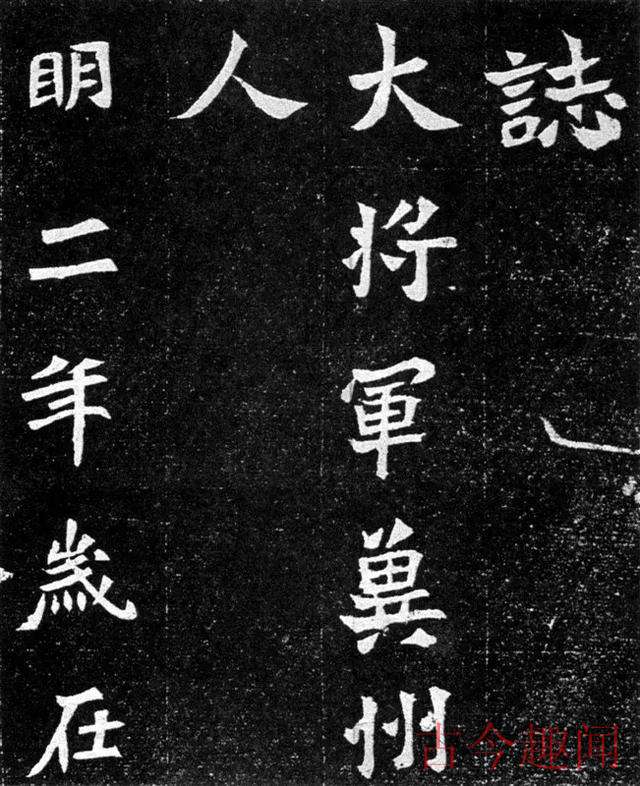 誌
大将軍冀州
人
明二年歲在
古今趣闻